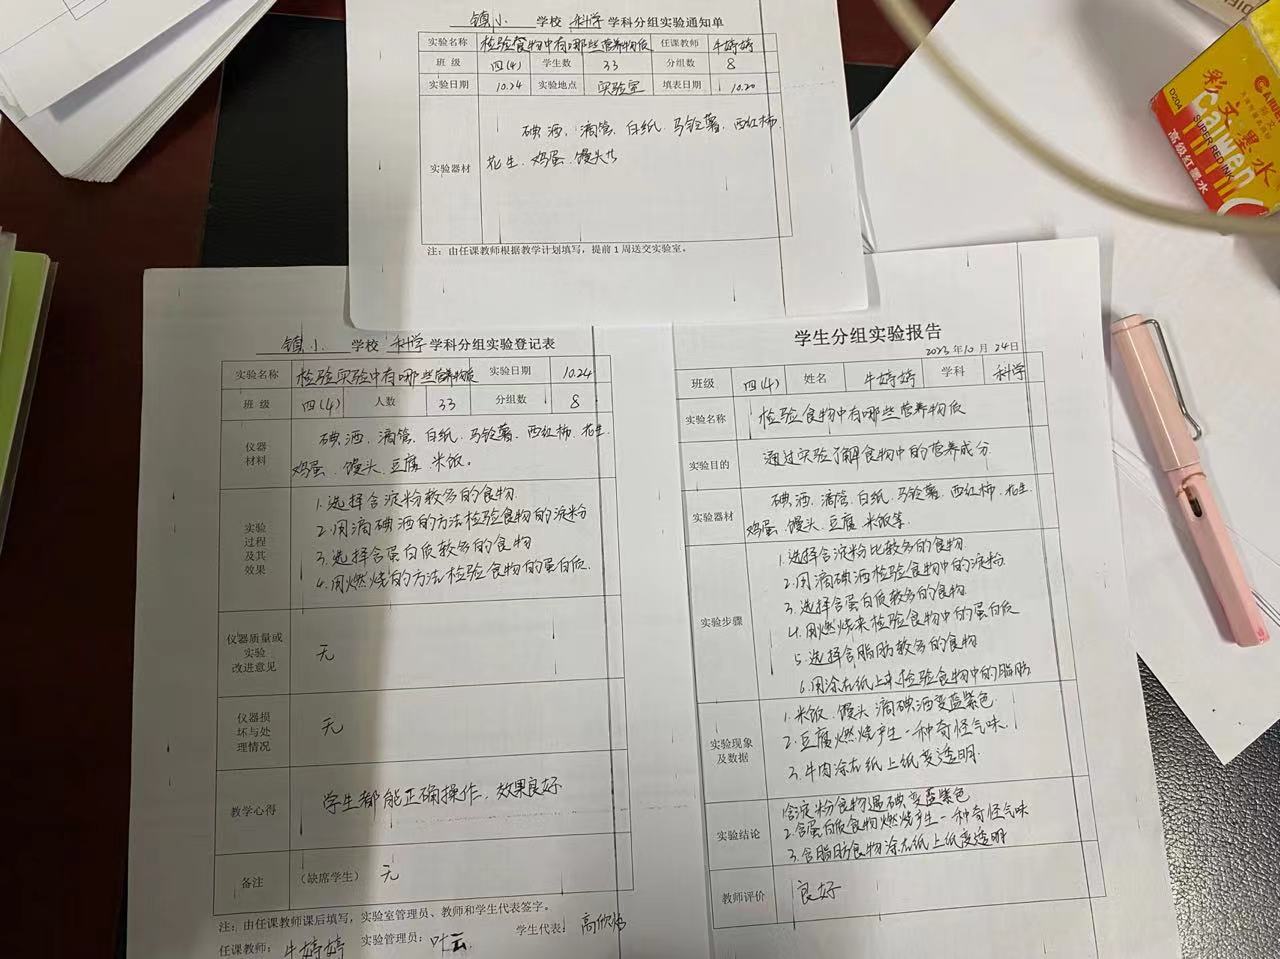 镇小 学校 科学 学科分组实验通知单
实验名称 检验食物中有哪些营养物质 任课教师 牛婷婷
班 级 四(4) 学生数 33 分组数 8
实验日期 10.24 实验地点 实验室 填表日期 10.20
实验器材
碘酒、滴管、白纸、马铃薯、西红柿、
花生、鸡蛋、馒头
注：由任课教师根据教学计划填写，提前 1 周送交实验室。
镇小 学校 科学 学科分组实验登记表
实验名称 检验实验中有哪些营养物质 实验日期 10.24
班 级 四(4) 人数 33 分组数 8
仪器
材料
碘酒、滴管、白纸、马铃薯、西红柿、花生、
鸡蛋、馒头、豆腐、米饭。
实验
过程
及其
效果
1.选择含淀粉较多的食物
2.用滴碘酒的方法检验食物的淀粉
3.选择含蛋白质较多的食物
4.用燃烧的方法检验食物的蛋白质.
仪器质量或
实验
改进意见
无
仪器损
坏与处
理情况
无
教学心得 学生都能正确操作，效果良好
备注 （缺席学生） 无
注：由任课教师课后填写，实验室管理员、教师和学生代表签字。
任课教师： 牛婷婷 实验管理员：叶云 学生代表：高欣
学生分组实验报告
2023 年 10 月 24 日
班级 四(4) 姓名 牛婷婷 学科 科学
实验名称 检验食物中有哪些营养物质
实验目的 通过实验了解食物中的营养成分
实验器材
碘酒、滴管、白纸、马铃薯、西红柿、花生、
鸡蛋、馒头、豆腐、米饭等.
实验步骤
1.选择含淀粉比较多的食物
2.用滴碘酒检验食物中的淀粉
3.选择含蛋白质较多的食物
4.用燃烧来检验食物中的蛋白质
5.选择含脂肪较多的食物
6.用涂在纸上来检验食物中的脂肪
实验现象
及数据
1.米饭、馒头滴碘酒变蓝紫色
2.豆腐燃烧产生一种奇怪气味
3.牛肉涂在纸上纸变透明.
实验结论
1.含淀粉食物遇碘变蓝紫色
2.含蛋白质食物燃烧产生一种奇怪气味
3.含脂肪食物涂在纸上纸变透明
教师评价 良好
彩文墨水
Caiwen
SUPER RED INK
高级红墨水
D204